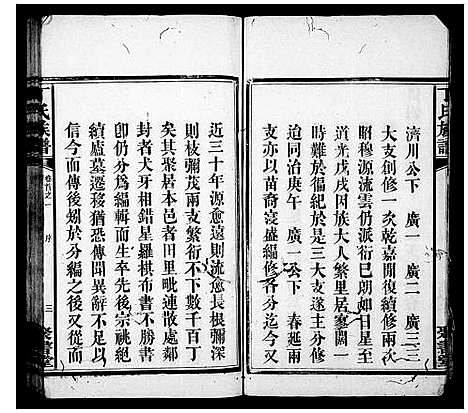 丁氏族譜
濟川公下　廣一　廣二　廣三三
大支創修一次乾嘉閒復續修兩次
昭穆源流雲仍派衍已朗如日月
道光戊戌因族大人繁里居寥闊一
時難於徧紀於是三大支遂分修焉
迨同治庚午　廣一公下　春延兩
次亦以苗裔寖盛編修各分迄今又
近三十年源愈遠則流愈長根彌深
則枝彌茂兩支繁衍不下數千百丁
矣其聚居本邑者田里毗連散處鄰
封者犬牙相錯星羅棋布書不勝書
卽仍分爲編輯而生卒先後宗祧絕
續廬墓遷移猶恐傳聞異辭不足以
信今而傳後矧於分編之後又從而
氏族譜
卷首之一
序
三
聚書堂